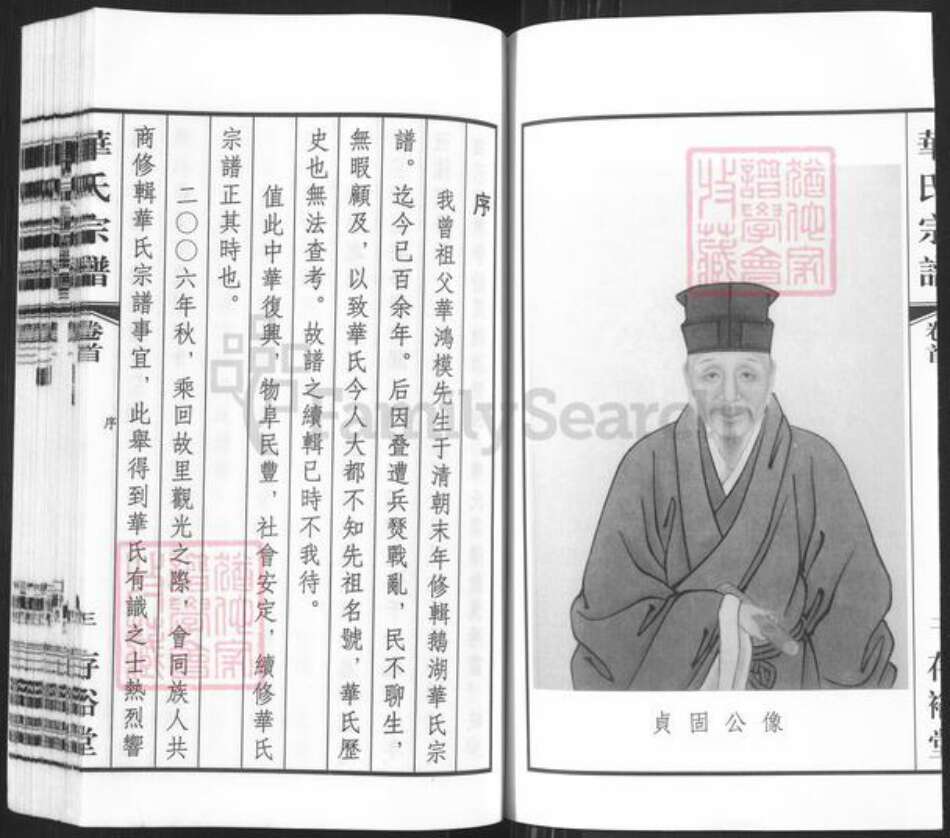 華氏宗譜
卷首
像公固貞
序
我曾祖父華鴻模先生于清朝末年修輯鵝湖華氏宗
譜。迄今已百余年。后因叠遭兵燹戰亂，民不聊生，
無暇顧及，以致華氏今人大都不知先祖名號，華氏歷
史也無法查考。故譜之續輯已時不我待。
值此中華復興，物阜民豐，社會安定，續修華氏
宗譜正其時也。
二〇〇六年秋，乘回故里觀光之際，會同族人共
商修輯華氏宗譜事宜，此舉得到華氏有識之士熱烈響
華氏宗譜
卷首
序
三
存裕堂
FamilySearch